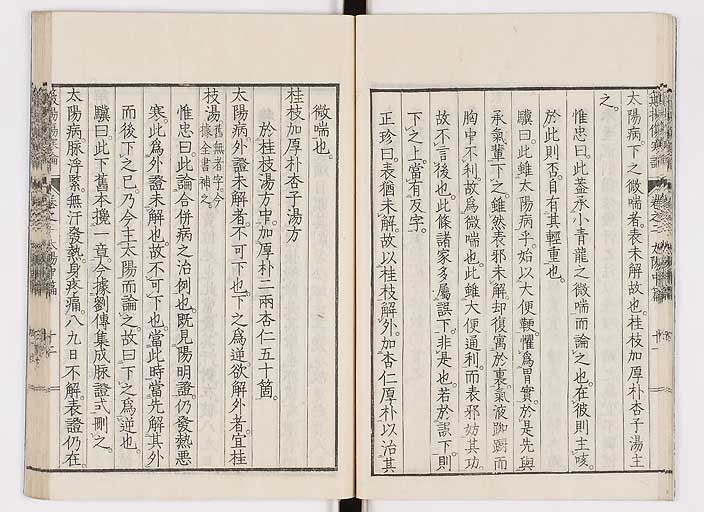 太陽病下之微喘者表未解故也桂枝加厚朴杏子湯主
之
惟忠曰此蓋承小青龍之微喘而論之也在彼則主咳
於此則否自有其輕重也
驥曰此雖太陽病乎始以大便鞕懼爲胃實於是先與
承氣輩下之雖然表邪未解却復寓於裏氣液踟躕而
胸中不利故爲微喘也此雖大便通利而表邪妨其功
故不言後也此條諸家多屬誤下非是也若於誤下則
下之上當有反字
正珍曰表猶未解故以桂枝解外加杏仁厚朴以治其
微喘也
桂枝加厚朴杏子湯方
於桂枝湯方中加厚朴二兩杏仁五十箇
太陽病外證未解者不可下也下之爲逆欲解外者宜桂
枝湯 舊無者字今據全書補之
惟忠曰此論合併病之治例也既見陽明證仍發熱惡
寒此爲外證未解也故不可下也當此時當先解其外
而後下之已乃今主太陽而論之故曰下之爲逆也
驥曰此下舊本攙一章今據劉傳集成脉證式刪之
太陽病脉浮緊無汗發熱身疼痛八九日不解表證仍在